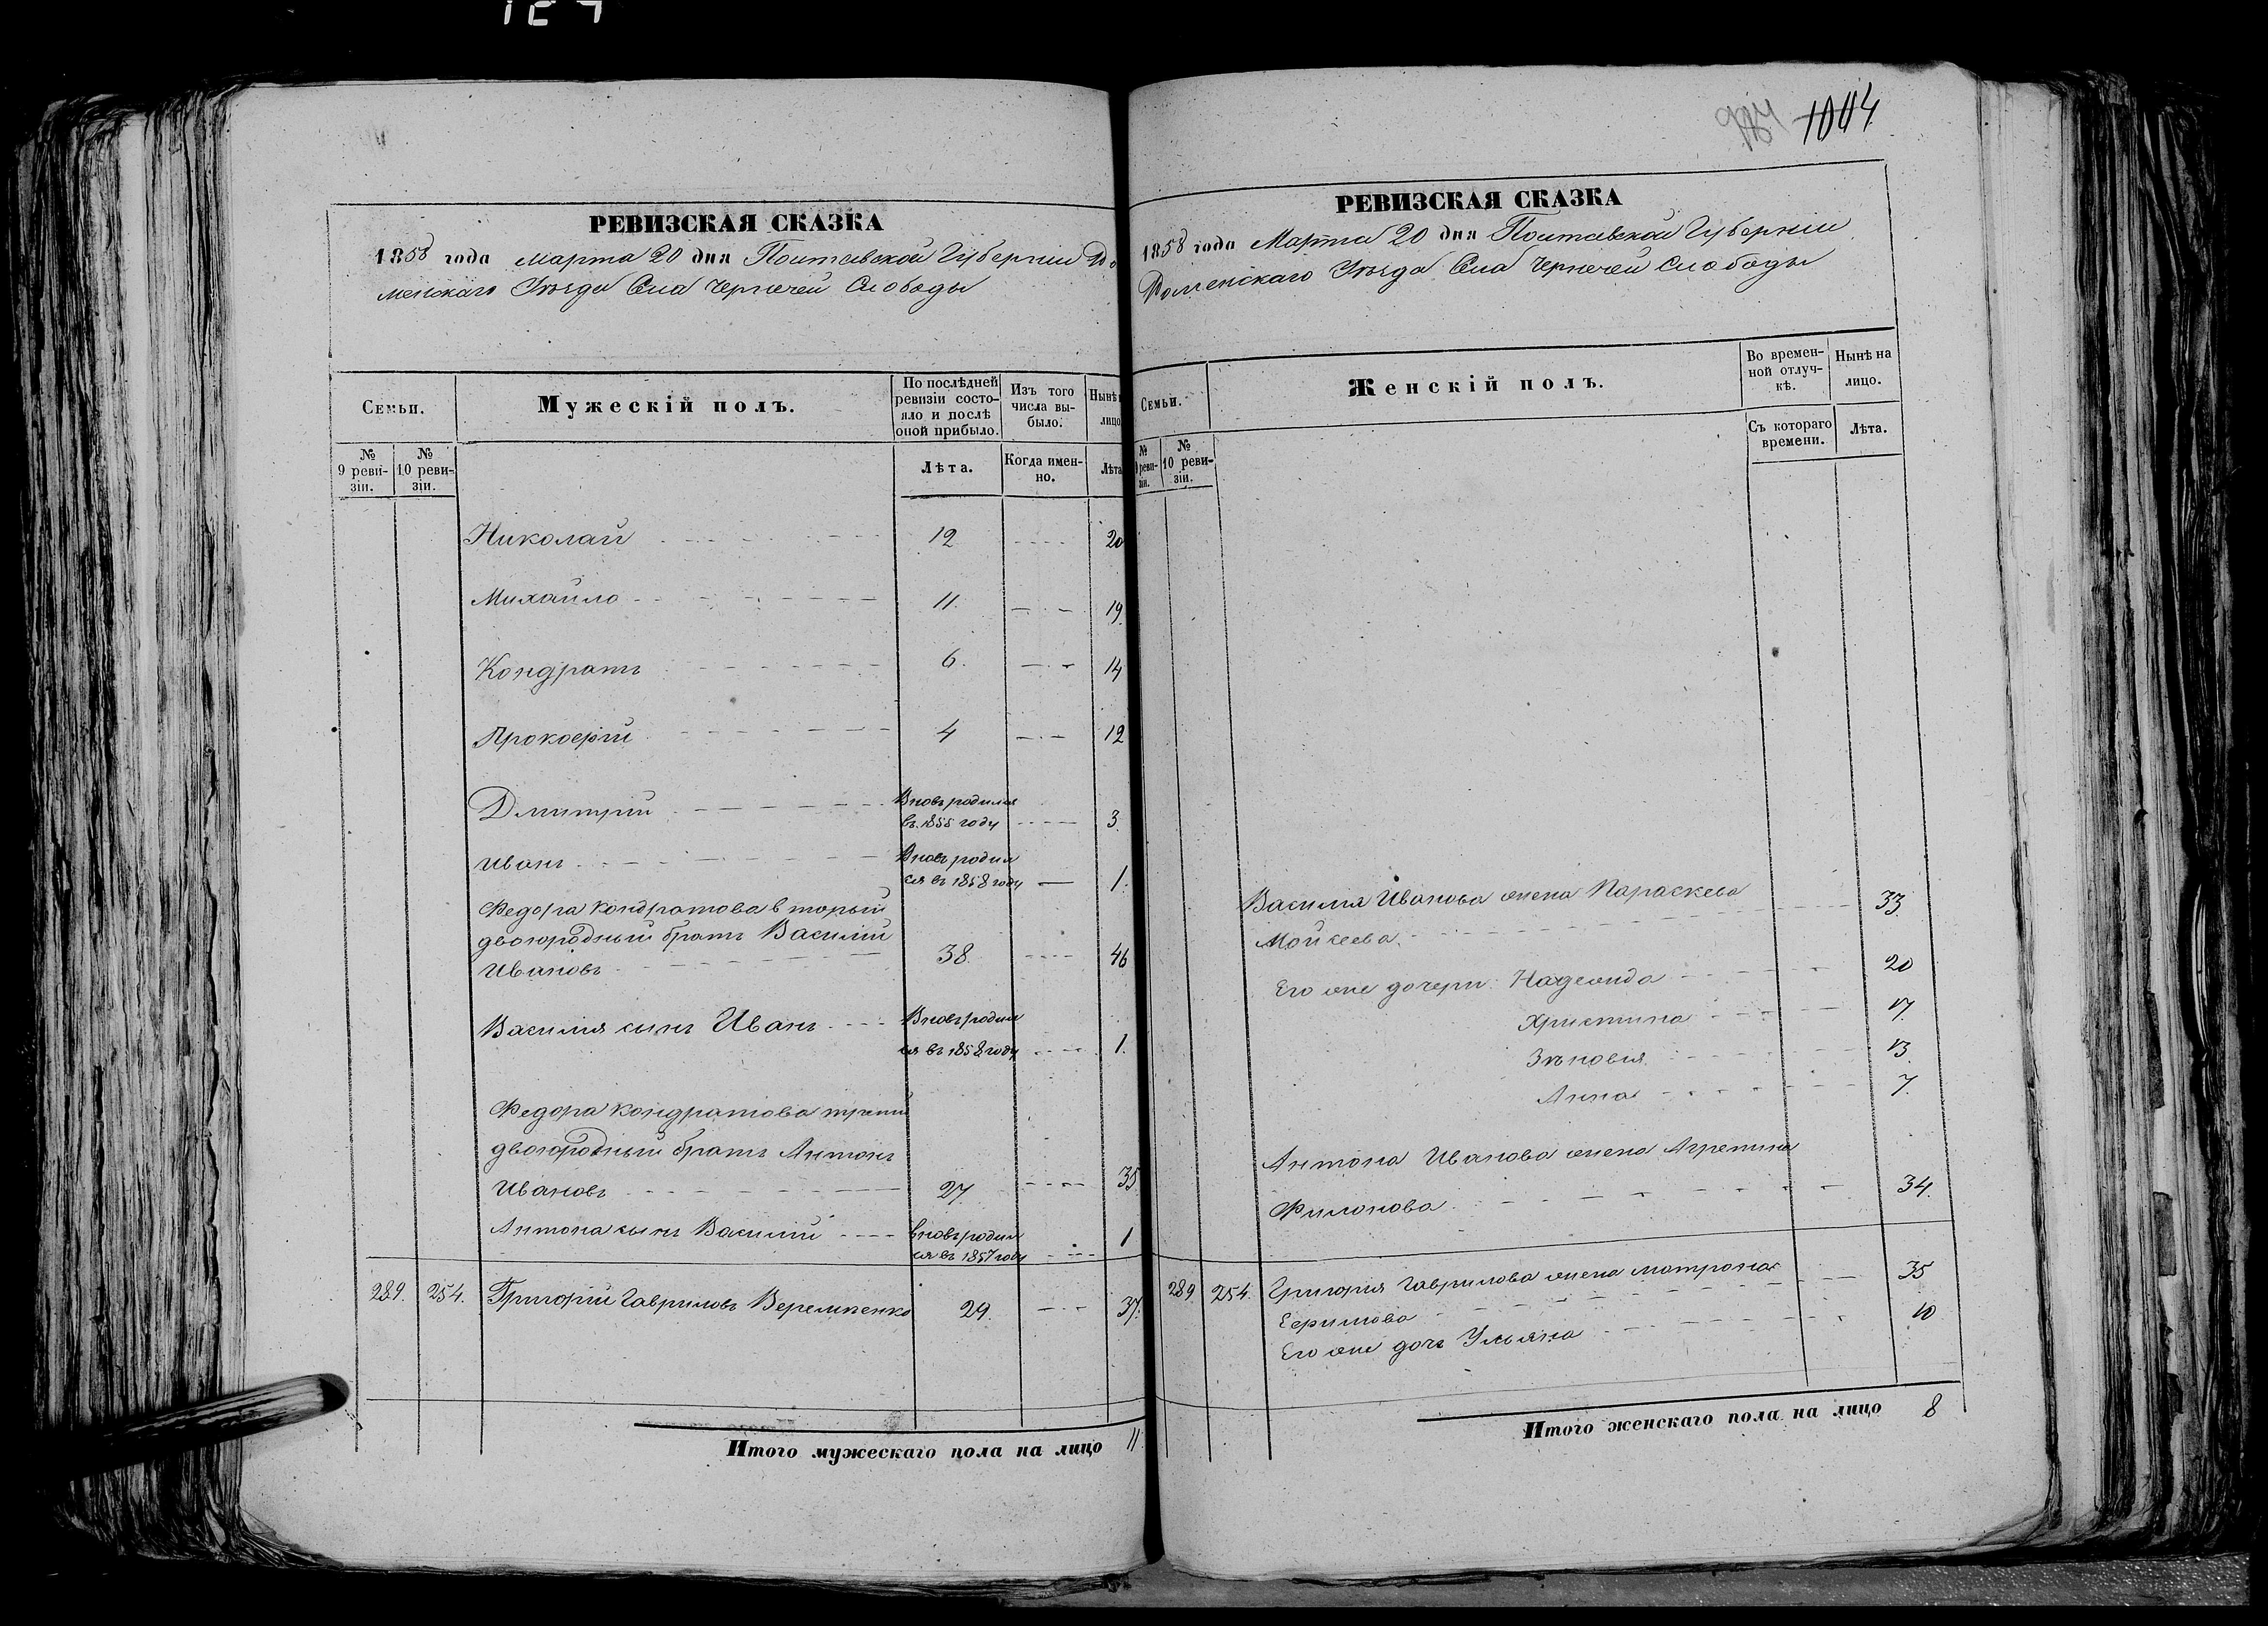 1004
РЕВИЗСКАЯ СКАЗКА
1858 года марта 20 дня Полтавской Губерніи Ро
менскаго Уѣзда Села Чернечей Слободы
Семьи.
Мужескій полъ.
По послѣдней ревизіи состояло и послѣ оной прибыло.
Изъ того числа выбыло.
Нынѣ
лицо
№ 9 ревизіи.
№ 10 ревизіи.
Лѣта.
Когда именно.
Лѣта
Николай 12 20
Михайло 11. 19.
Кондратъ 6. 14
Прокофій 4 12
Дмитрий Вновь родился въ 1855 году 3.
Иванъ Вновь родился въ 1858 году 1.
Федора Кондратова вторый
двоюродный братъ Василий
Ивановъ 38. 46
Василия сынъ Иванъ Вновь родился въ 1858 году 1.
Федора Кондратова третий
двоюродный братъ Антонъ
Ивановъ 27. 35.
Антона сынъ Василий вновь родился въ 1857 году 1
289. 254. Григорий Гавриловъ Веремиенко 29. 37.
Итого мужескаго пола на лицо 11.
РЕВИЗСКАЯ СКАЗКА
1858 года Марта 20 дня Полтавской Губерніи
Роменскаго Уѣзда Села Чернечей Слободы
Семьи.
Женскій полъ.
Во временной отлучкѣ.
Нынѣ на лицо.
№ 9 ревизіи.
№ 10 ревизіи.
Съ котораго времени.
Лѣта.
Василия Иванова жена Параскева 33.
Мойсеева.
Его же дочери: Надежда 20
Христина 17.
Зѣновия 13.
Анна 7.
Антона Иванова жена Агрепина
Филонова 34.
289 254. Григория Гаврилова жена Матрона 35
Ефимова
Его же дочь Ульяна 10
Итого женскаго пола на лицо 8